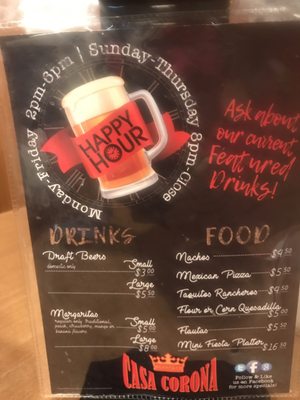 Monday-Friday 2pm-6pm | Sunday-Thursday 8pm-Close
HAPPY
HOUR
Ask about
our current
Featured
Drinks!
DRINKS
Draft Beers
domestic only
Small
$3.00
Large
$5.50
Margaritas
regular only, traditional,
peach, strawberry, mango or
banana flavors
Small
$5.00
Large
$8.00
FOOD
Nachos $4.50
Mexican Pizza $5.50
Taquitos Rancheros $4.50
Flour or Corn Quesadilla
$5.00
Flautas $5.50
Mini Fiesta Platter
$16.50
CASA CORONA
Follow & Like
us on Facebook
for more specials!